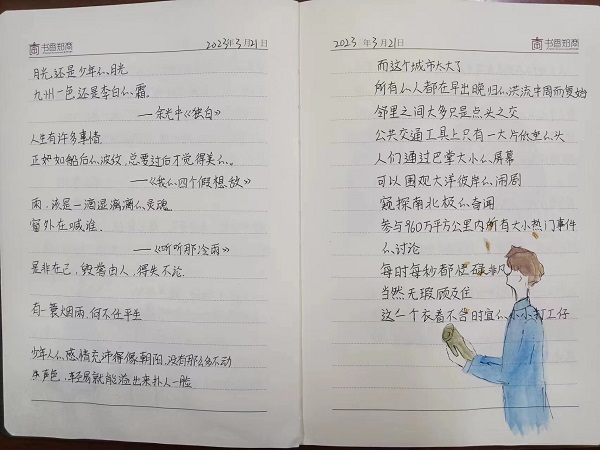 书香知商 2023年3月21日
月光还是少年的月光
九州一色还是李白的霜
——余光中《独白》
人生有许多事情
正如如船后的波纹,总要过后才觉得美的。
——《我的四个假想敌》
雨,该是一滴湿漓漓的灵魂
窗外在喊谁.
——《听听那冷雨》
是非在己,毁誉由人,得失不论.
有一蓑烟雨,何不任平生
少年人的感情充沛得像朝阳,没有那么多不动
声色,轻易就能溢出来扑人一脸
2023年3月21日 书香知商
而这个城市太大了
所有的人都在早出晚归的洪流中周而复始
邻里之间大多只是点头之交
公共交通工具上只有一大片低垂的头
人们通过巴掌大小的屏幕
可以围观大洋彼岸的闹剧
窥探南北极的奇闻
参与960万平方公里内所有大小热门事件
的讨论
每时每秒都忙碌非凡
当然无暇顾及住
这一个衣着不合时宜的小小打工仔